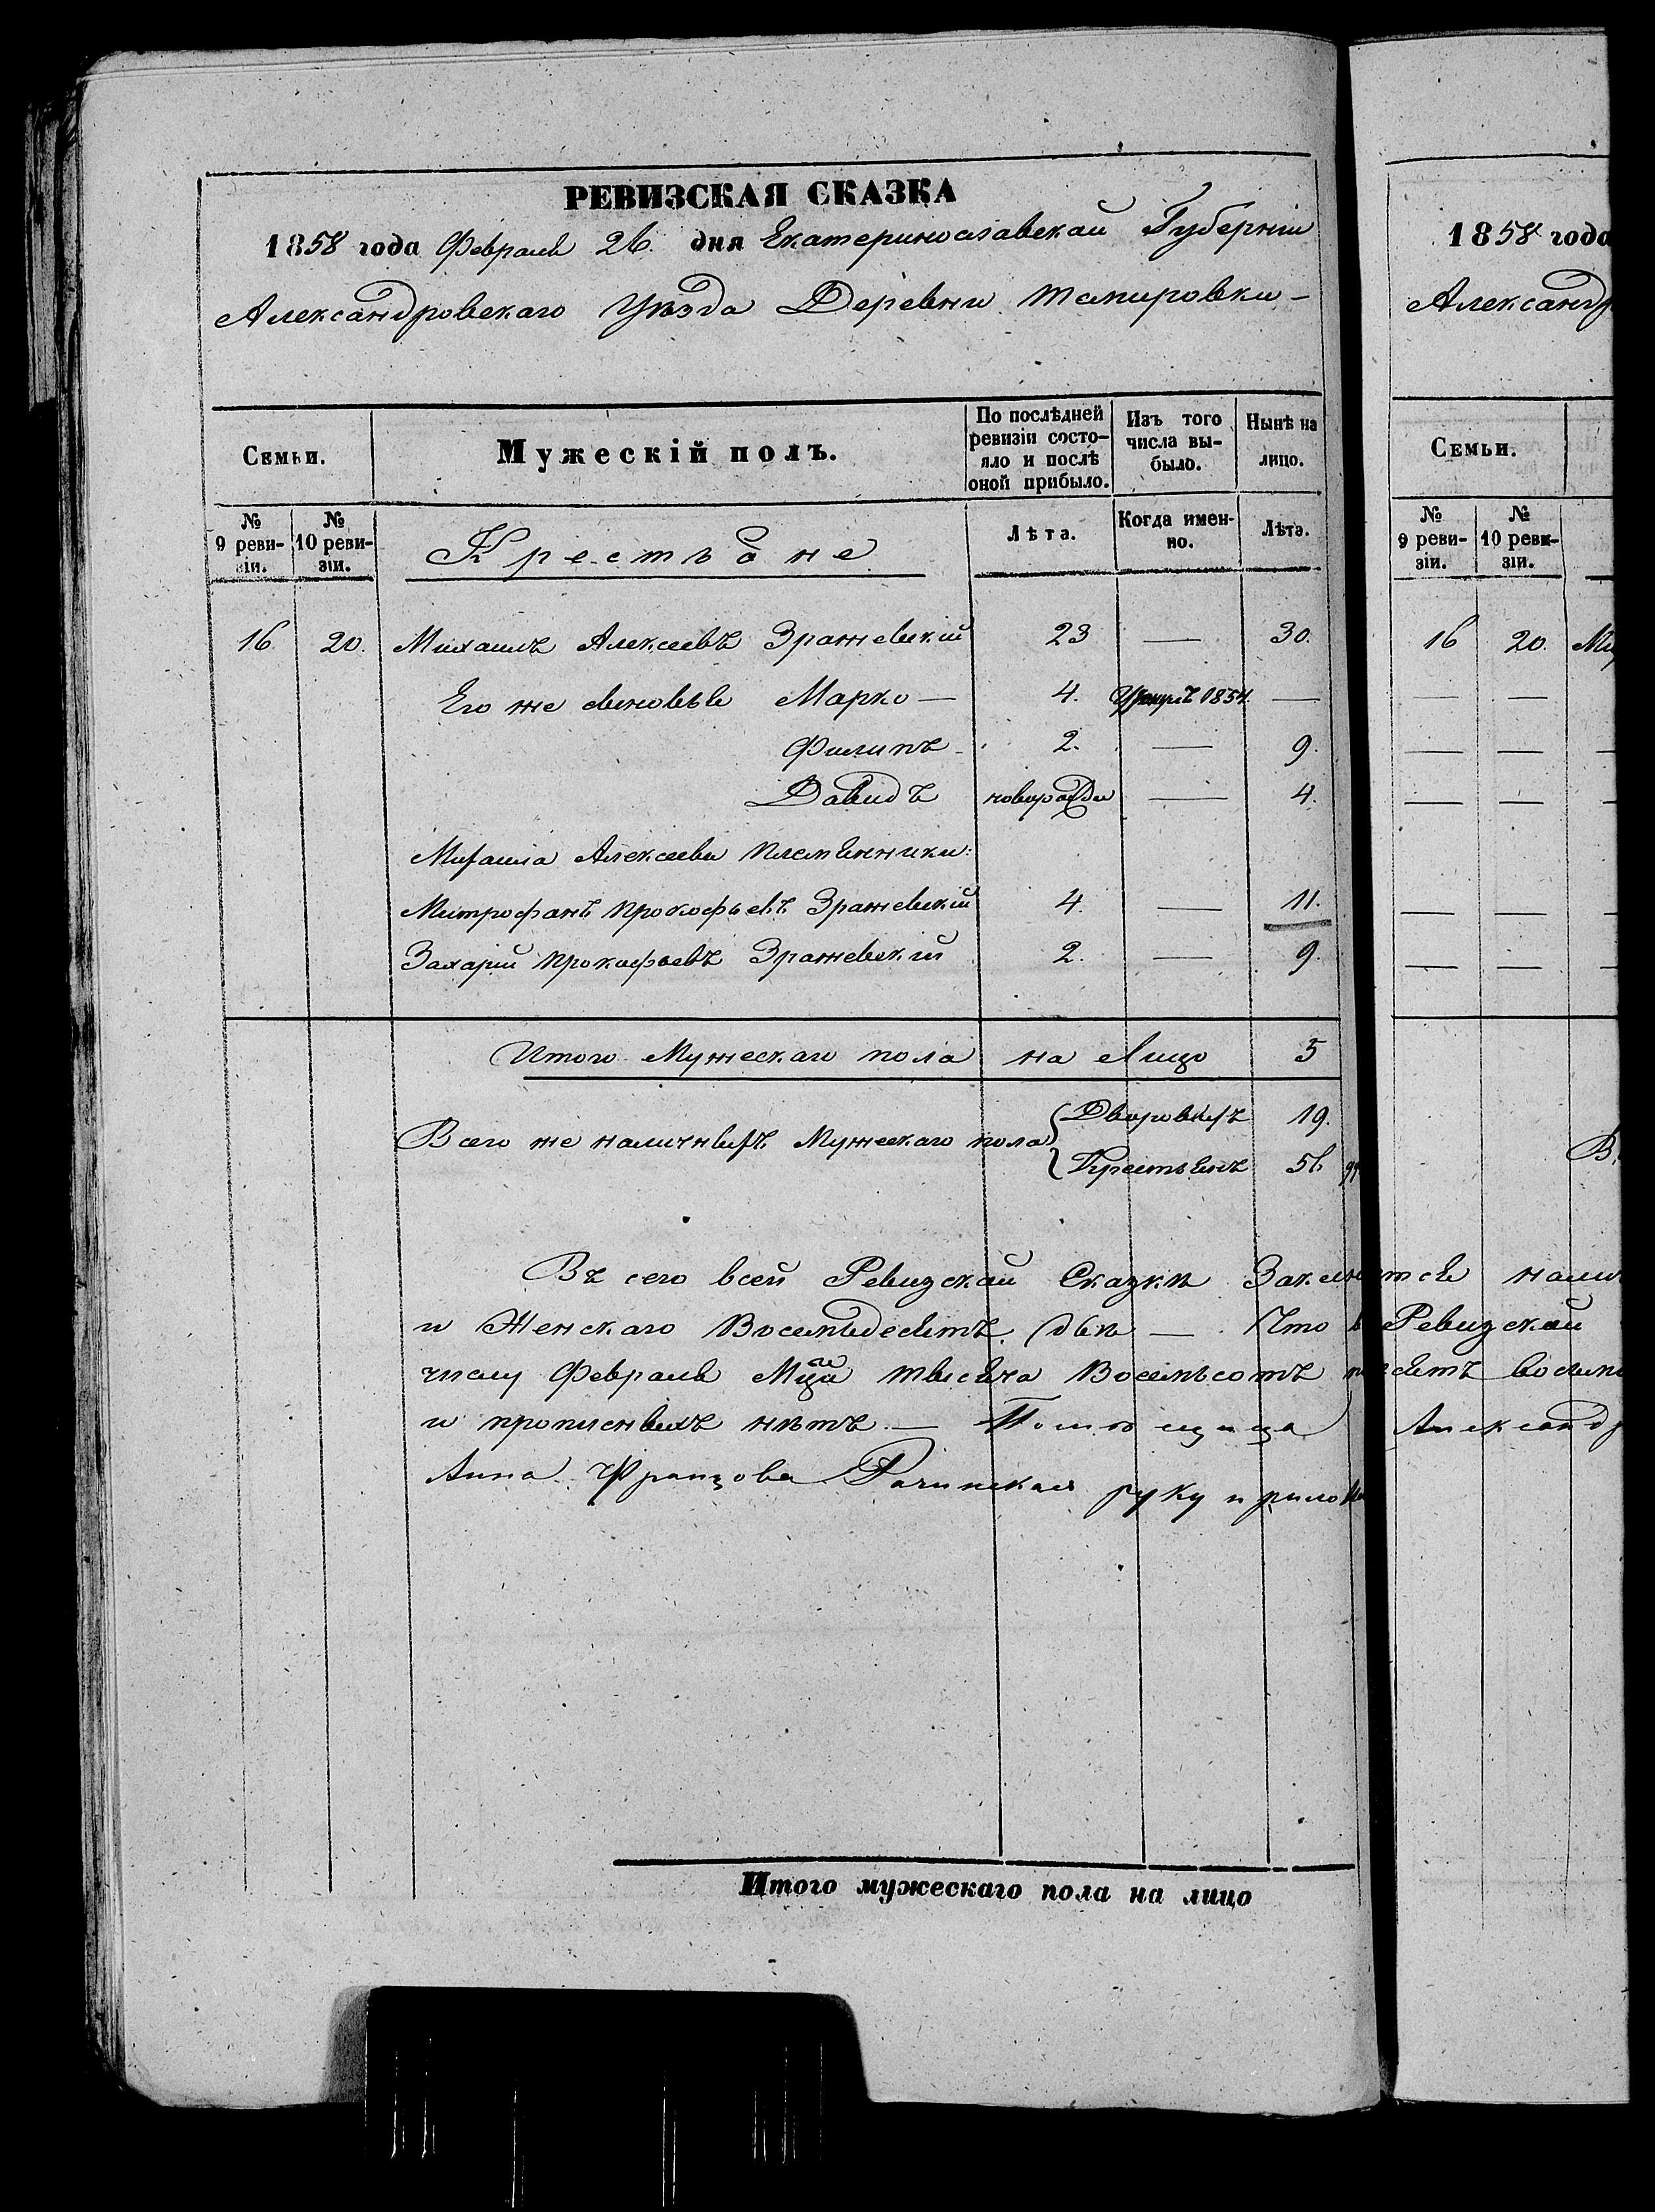 РЕВИЗСКАЯ СКАЗКА
1858 года Февраля 26. дня Екатеринославской Губерніи
Александровскаго Уѣзда Деревни
Семьи.
Мужескій полъ.
По послѣдней ревизіи состо-
яло и послѣ
оной прибыло.
Изъ того
числа вы-
было.
Нынѣ на
лицо.
№
9 реви-
зіи.
№
10 реви-
зіи.
Крестьяне
Лѣта.
Когда имен-
но.
Лѣта.
16 20. Михаилъ Алексеевъ Зражевскій 23 — 30.
Его же сыновья Марко — 4. 1854. —
Филипъ 2. — 9.
Давидъ — 4.
Михаила Алексеева племянники:
Митрофанъ Прокофьевъ Зражевскій 4. — 11.
Захарій Прокофьевъ Зражевскій 2. — 9.
Итого Мужескаго пола на Лицо 5
Всего же наличныхъ Мужескаго пола
Дворовыхъ 19.
Крестьянъ 56
Въ сего всей Ревизской Сказки
и Женскаго Восемьдесятъ двѣ — Что
числу Февраля Мца тысяча Восемьсотъ
и прописныхъ нѣтъ. — Помѣщица
Анна Францова руку прило
Итого мужескаго пола на лицо
1858 года
Александр
Семьи.
№
9 реви-
зіи.
№
10 реви-
зіи.
16 20. Ми
— —
— —
— —
— —
— —
В
Ревизской
Александр